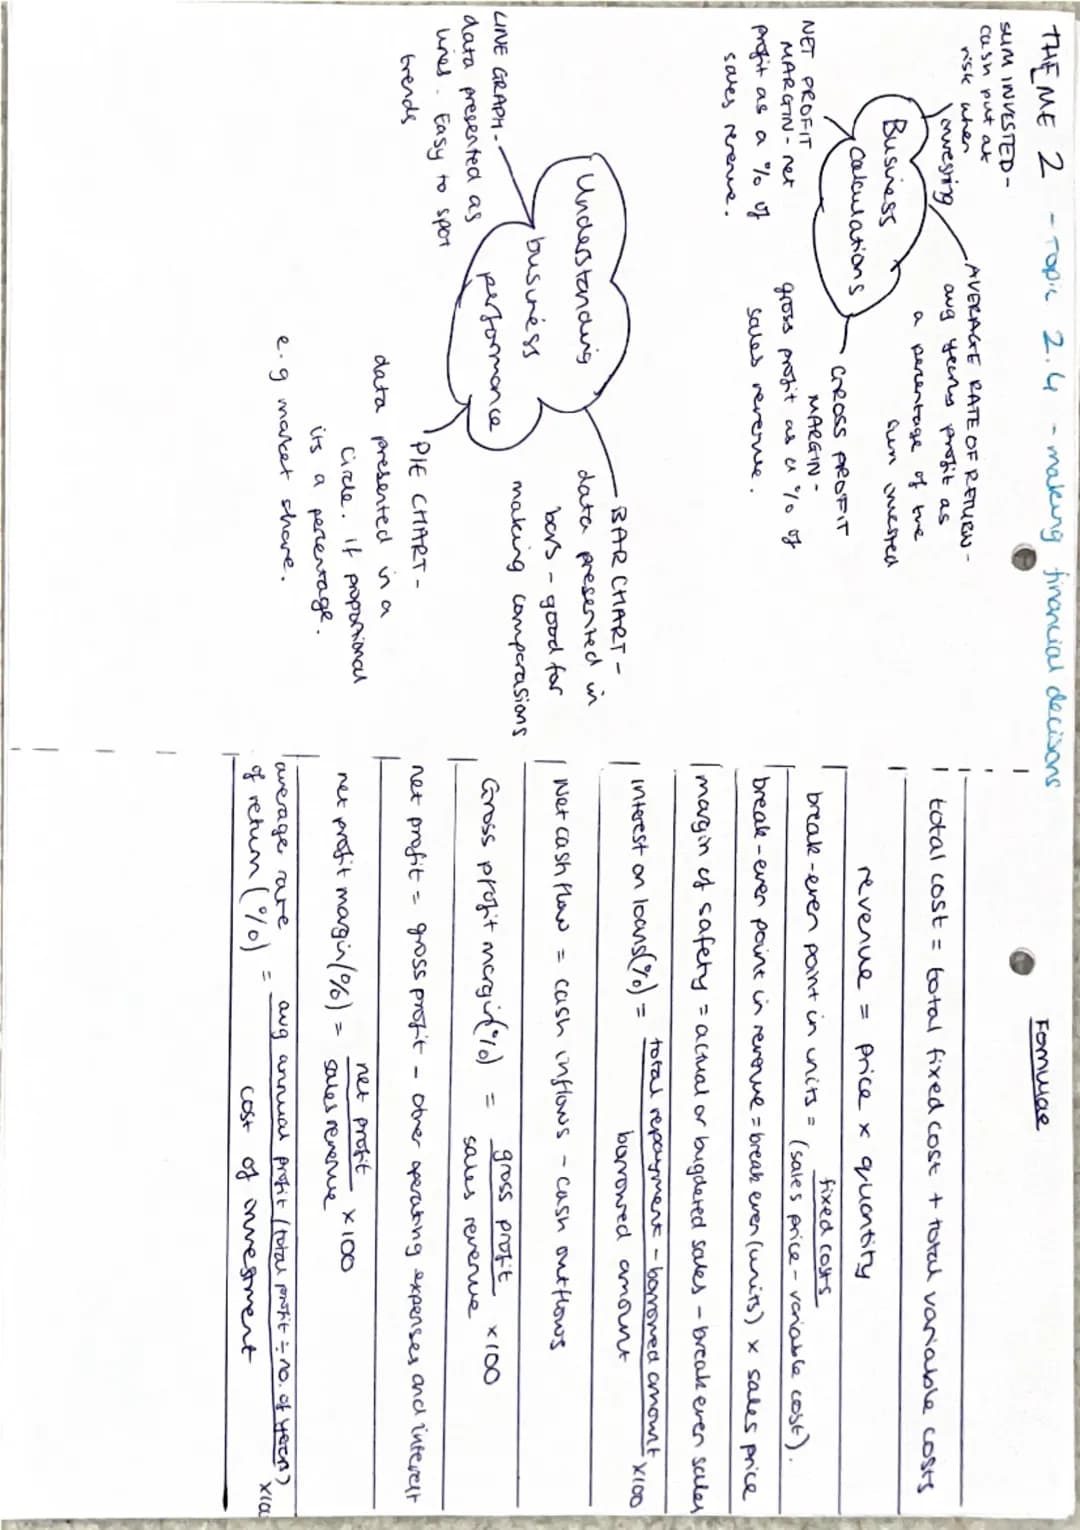 THEME 2 - Topic 2.4 - making financial decisons
SUM INVESTED -
cash put at
risk when
investing
AVERAGE RATE OF RETURN -
avg yearly profit as
a percentage of the
sum invested
Business
calculations
NET PROFIT
MARGIN - net
profit as a % of
sales revenue.
GROSS PROFIT
MARGIN -
gross profit as a % of
sales revenue.
Understanding
business
performance
LINE GRAPH -
data presented as
lines. Easy to spot
trends
BAR CHART -
data presented in
bars - good for
making comparasions
PIE CHART -
data presented in a
circle. if proportional
its a percentage.
e.g market share.
Formulae
total cost = total fixed cost + total variable costs
revenue = price x quantity
break-even point in units = fixed costs
(sales price - variable cost).
break-even point in revenue = break even (units) x sales price
margin of safety = actual or bugdeted sales - break even sales
interest on loans (%) = total repayment - borrowed amount x100
borrowed amount
Net cash flow = cash inflows - cash outflows
Gross profit margin (%) = gross profit x100
sales revenue
net profit = gross profit - other operating expenses and interest
net profit margin (%) = net profit x100
sales revenue
average rate
of return (%) = avg annual profit (total profit ÷ no. of years) x100
cost of investment